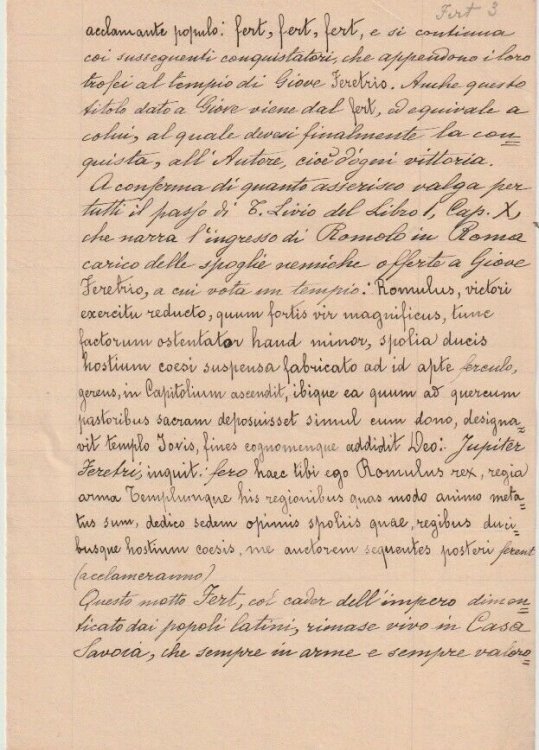 Fert 3
acclamante populo: fert, fert, fert, e si continua
coi susseguenti conquistatori, che appendono i loro
trofei al tempio di Giove Feretrio. Anche questo
titolo dato a Giove viene dal fert, ed equivale a
colui, al quale devesi finalmente la con=
quista, all'Autore, cioè d'ogni vittoria.
A conferma di quanto asserisco valga per
tutti il passo di T. Livio del Libro 1, Cap. X,
che narra l'ingresso di Romolo in Roma
carico delle spoglie nemiche offerte a Giove
Feretrio, a cui vota un tempio: Romulus, victori
exercitu reducto, quum fortis vir magnificus, tunc
factorum ostentator haud minor, spolia ducis
hostium coesi suspensa fabricato ad id apte ferculo,
gerens, in Capitolium ascendit, ibique ea quum ad quercum
pastoribus sacram deposuisset simul cum dono, designa=
vit templo Jovis, fines cognomenque addidit Deo: Jupiter
Feretri, inquit: fero haec tibi ego Romulus rex, regia
arma Templumque his regionibus quas modo animo meta=
tus sum, dedico sedem opimis spoliis quae, regibus duci=
busque hostium coesis, me auctorem sequentes posteri ferent
(acclameranno)
Questo motto Fert, col cader dell'impero dimen=
ticato dai popoli latini, rimase vivo in Casa
Savoia, che sempre in arme e sempre valoro=